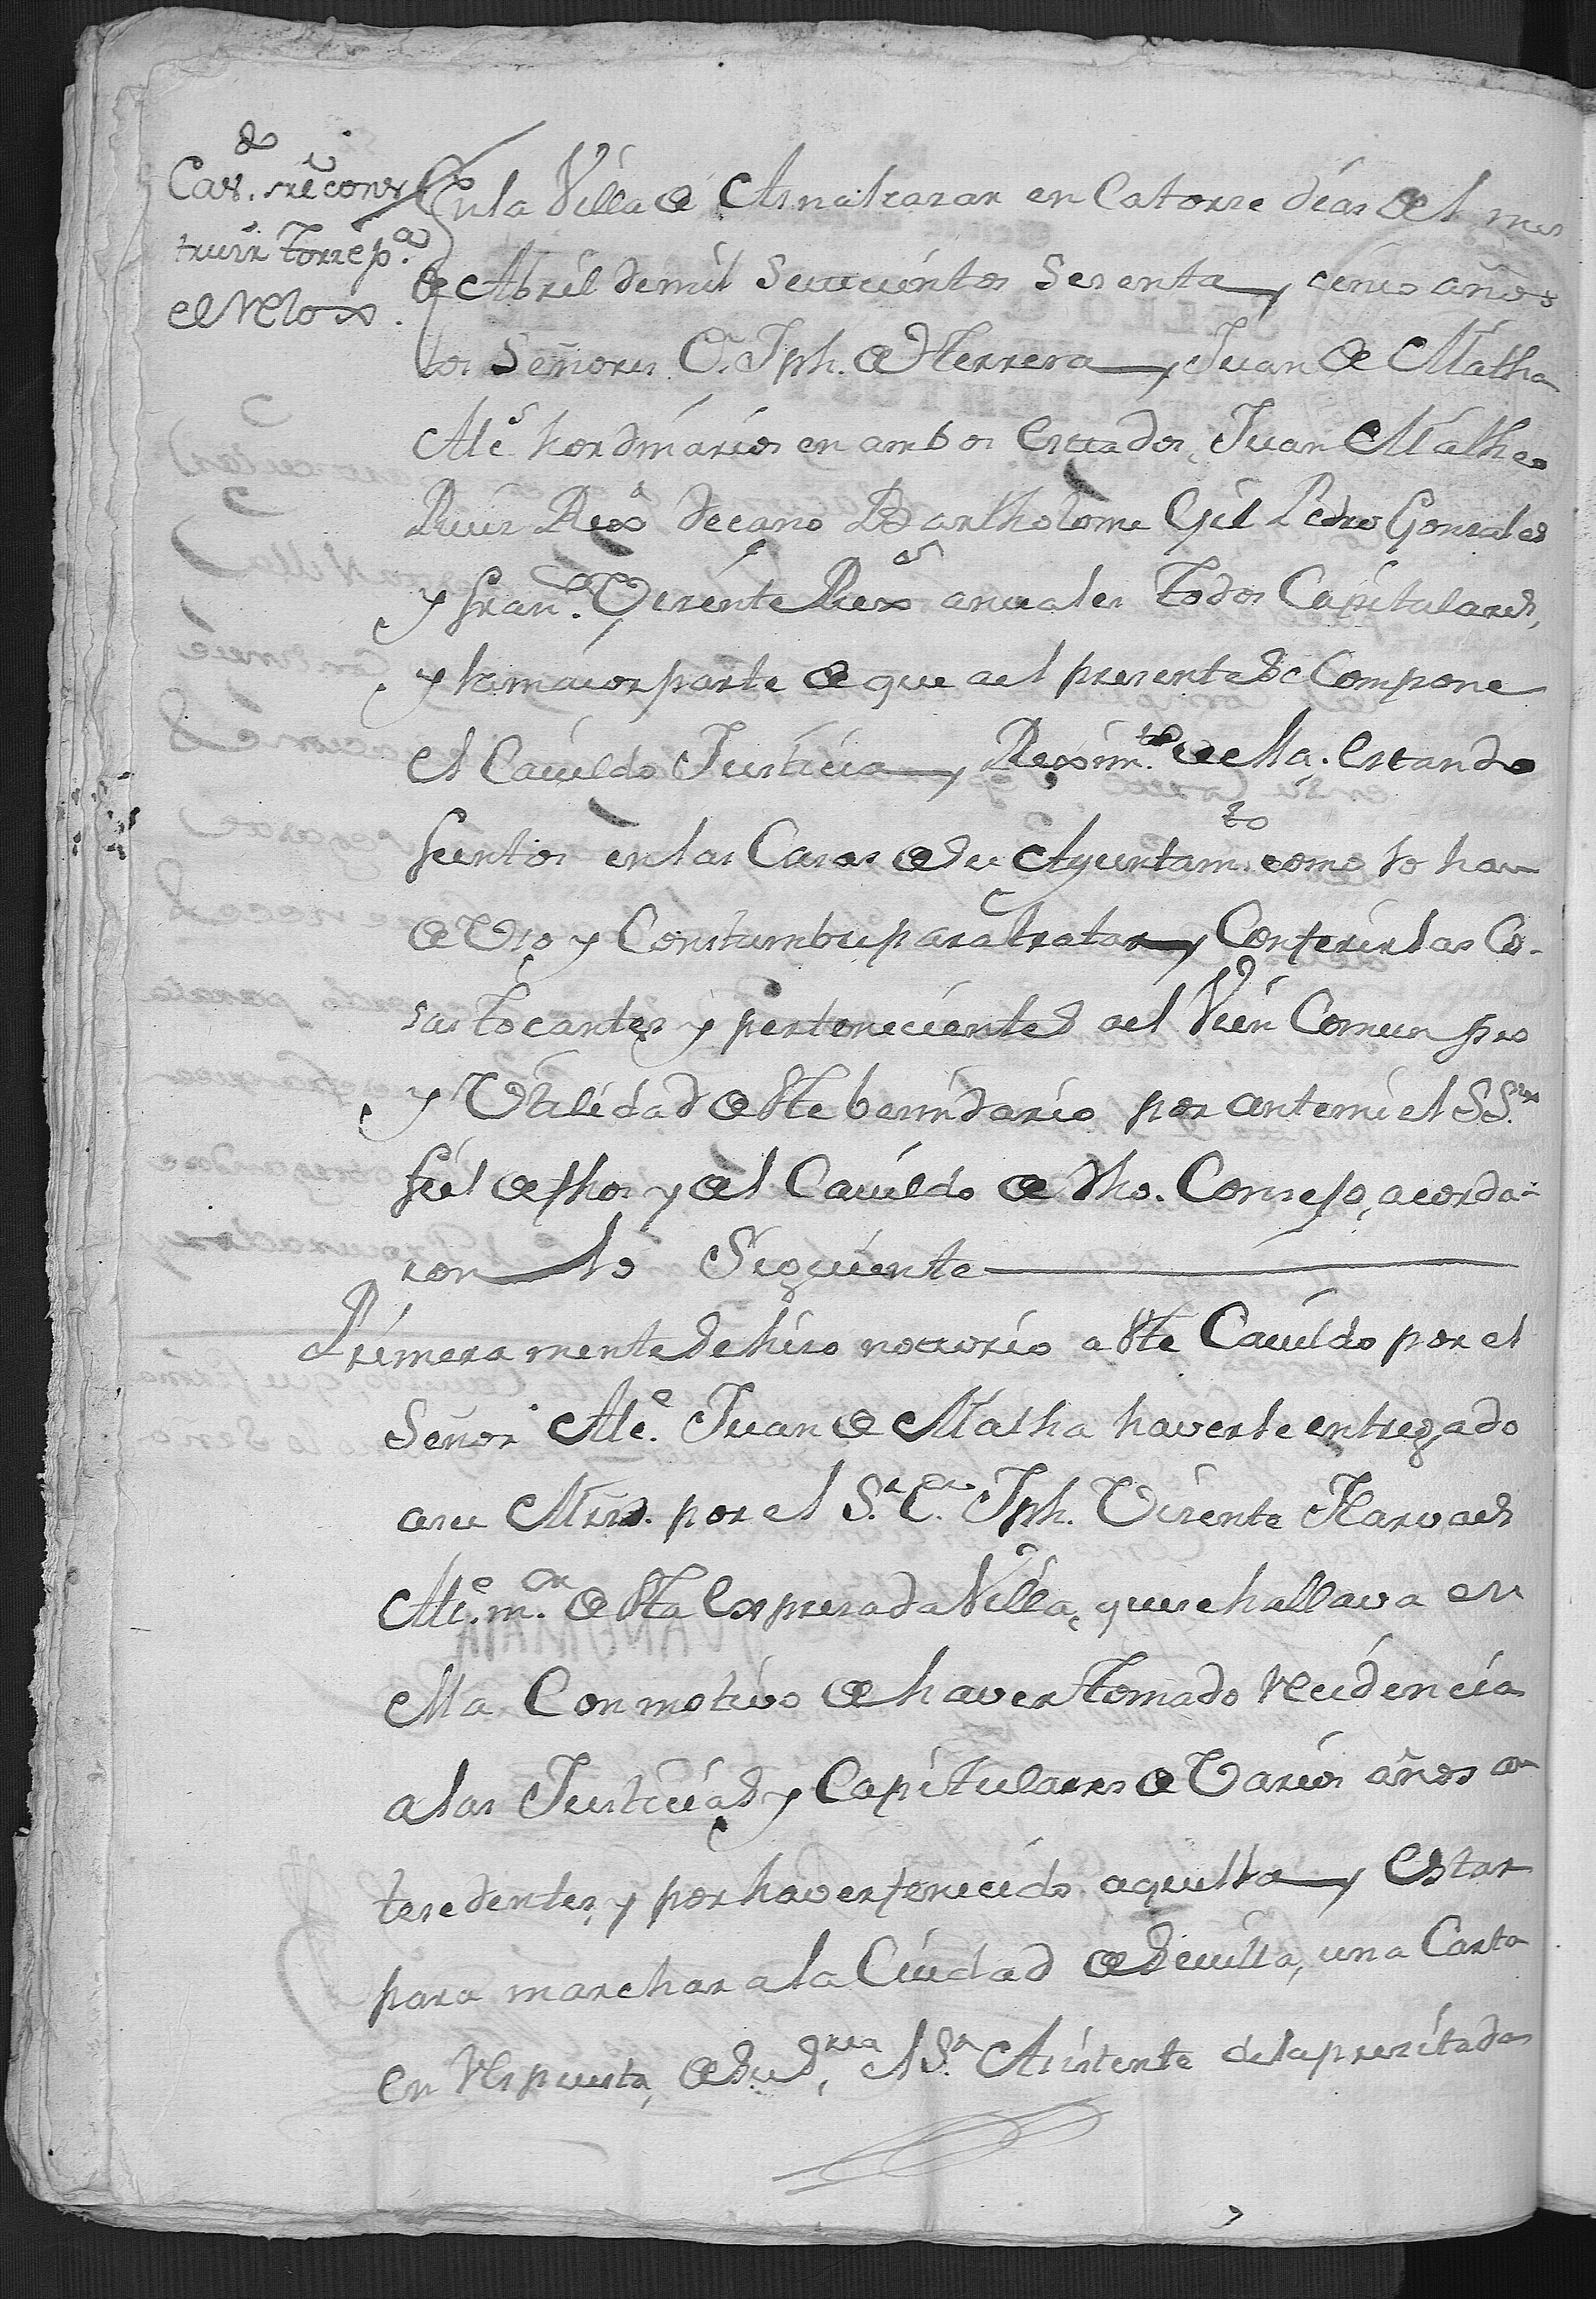 Cav.do sre cons
truir Torre p.a
el Relox.
En la Villa de Asnalcazar en Catorze dias del mes
de Abril de mil Setecientos Sesenta y cinco años
los Señores D. Jph. de Herrera y Juan de Matha
Alc.s hordinarios en ambos Estados, Juan Matheo
Ruiz Rex.or decano Bartholome Gil Pedro Gonzales
y Fran.co Vizente Rex.os anuales Todos Capitulares,
y la maior parte de que al presente se Compone
el Cavildo Justicia y Reximto. de ella. Estando
Juntos en las Casas de su Ayuntam.to como lo han
de Uso y Constumbre para tratar y Conferir las Co-
sas tocantes y pertenecientes al Vien Comun pro
y Utilidad de este becindario por ante mi el SS.no
fiel de fhos y del Cavildo de dho. Consejo, acorda-
ron lo Siguiente
Primeramente se hizo notorio a este Cavildo por el
Señor Alc.e Juan de Matha haverle entregado
a su Mrd. por el S.r D.n Jph. Vizente Narvaes
Alc.e m.or de esta Expresada Villa, que se hallava en
ella Con motivo de haver tomado Residencia
a las Justicias y Capitulares de Varios años an
tesedentes, y por haver fenecido aquella y Estar
para marchar a la Ciudad de Sevilla, una Carta
en Respuesta, de Su S.ria el S.r Asistente de la presitada